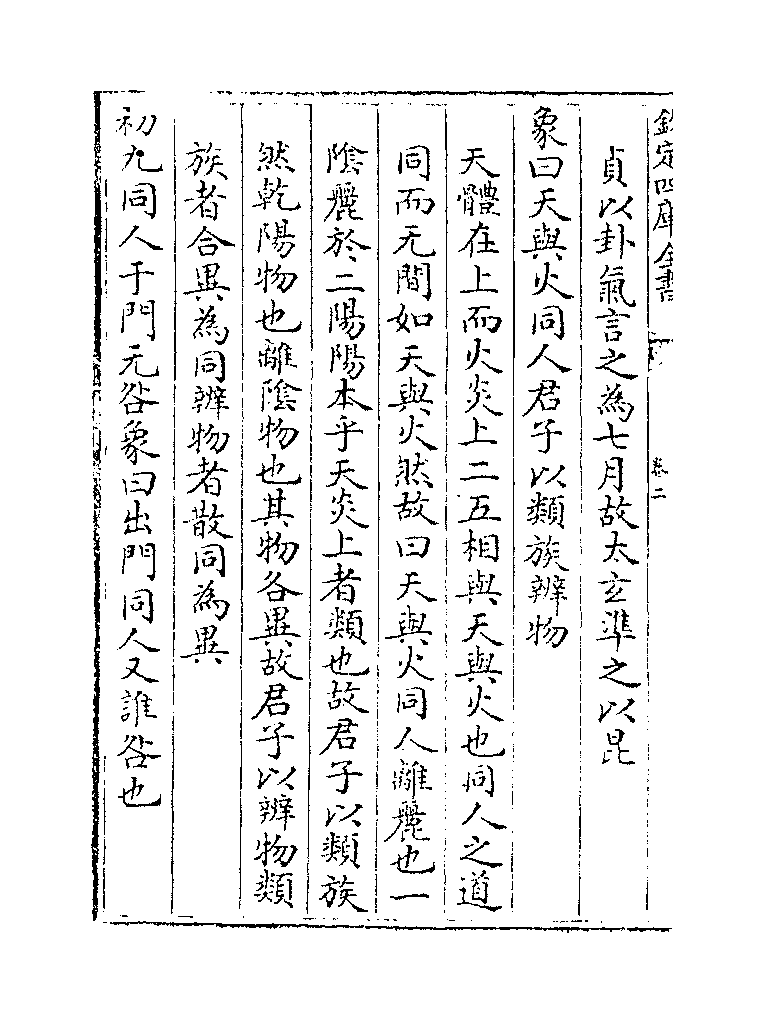 欽定四庫全書
卷二
貞以卦氣言之為七月故太玄準之以昆
象曰天與火同人君子以類族辨物
天體在上而火炎上二五相與天與火也同人之道
同而无間如天與火然故曰天與火同人離麗也一
陰麗於二陽陽本乎天炎上者類也故君子以類族
然乾陽物也離陰物也其物各異故君子以辨物類
族者合異為同辨物者散同為異
初九同人于門无咎象曰出門同人又誰咎也